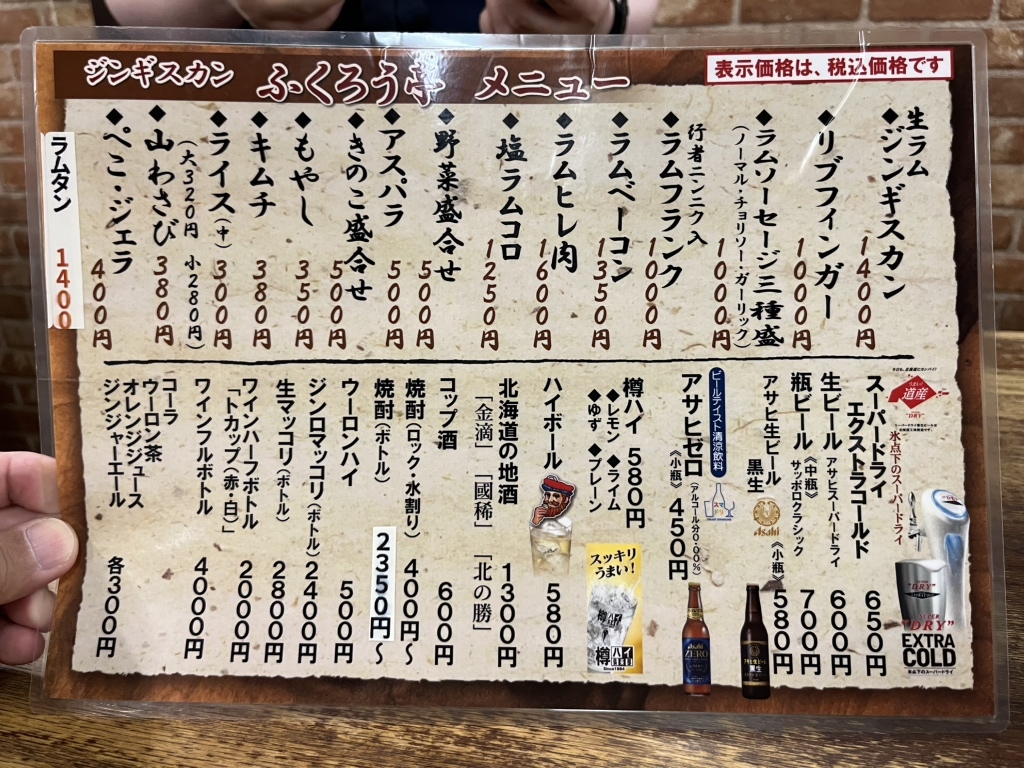 ジンギスカン ふくろう亭 メニュー
表示価格は、税込価格です
生ラム
◆ジンギスカン 1400円
◆リブフィンガー 1000円
◆ラムソーセージ三種盛 1000円
(ノーマル・チョリソー・ガーリック)
行者ニンニク入
◆ラムフランク 1000円
◆ラムベーコン 1350円
◆ラムヒレ肉 1600円
◆塩ラムコロ 1250円
◆野菜盛合せ 500円
◆アスパラ 500円
◆きのこ盛合せ 500円
◆もやし 350円
◆キムチ 380円
◆ライス(中) 300円
(大320円 小280円)
◆山わさび 380円
◆ぺこ・ジェラ 400円
ラムタン 1400
うまい!!
道産
"DRY"
氷点下のスーパードライ
"DRY"
"DRY"
EXTRA
COLD
氷点下のスーパードライ
スーパードライ
エクストラコールド 650円
生ビール アサヒスーパードライ 600円
瓶ビール 《中瓶》 サッポロクラシック 700円
アサヒ生ビール 黒生 《小瓶》 580円
Asahi
ビールテイスト清涼飲料
スマドリ
アサヒゼロ 《小瓶》 450円
(アルコール分0.00%)
Asahi
ZERO
アサヒ生ビール
黒生
樽ハイ 580円
◆レモン ◆ライム
◆ゆず ◆プレーン
スッキリ
うまい!
樽ハイ
樽ハイ
Since1984
ハイボール 580円
北海道の地酒 1300円
「金滴」「國稀」「北の勝」
コップ酒 600円
焼酎(ロック・水割り) 400円~
焼酎(ボトル) 2350円~
ウーロンハイ 500円
ジンロマッコリ(ボトル) 2400円
生マッコリ(ボトル) 2800円
ワインハーフボトル 2000円
「トカップ(赤・白)」
ワインフルボトル 4000円
コーラ
ウーロン茶
オレンジジュース
ジンジャーエール 各300円